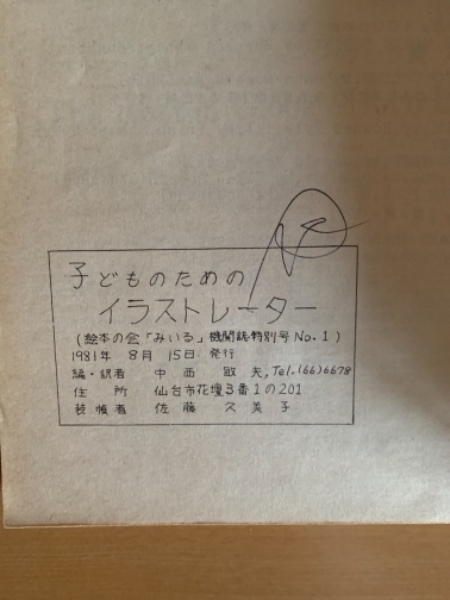 子どものための
イラストレーター
(絵本の会「みいる」機関誌特別号No.1)
1981年 8月 15日 発行
編・訳者 中西 敏夫, Tel.(66)6678
住所 仙台市花壇3番1の201
装幀者 佐藤 久美子